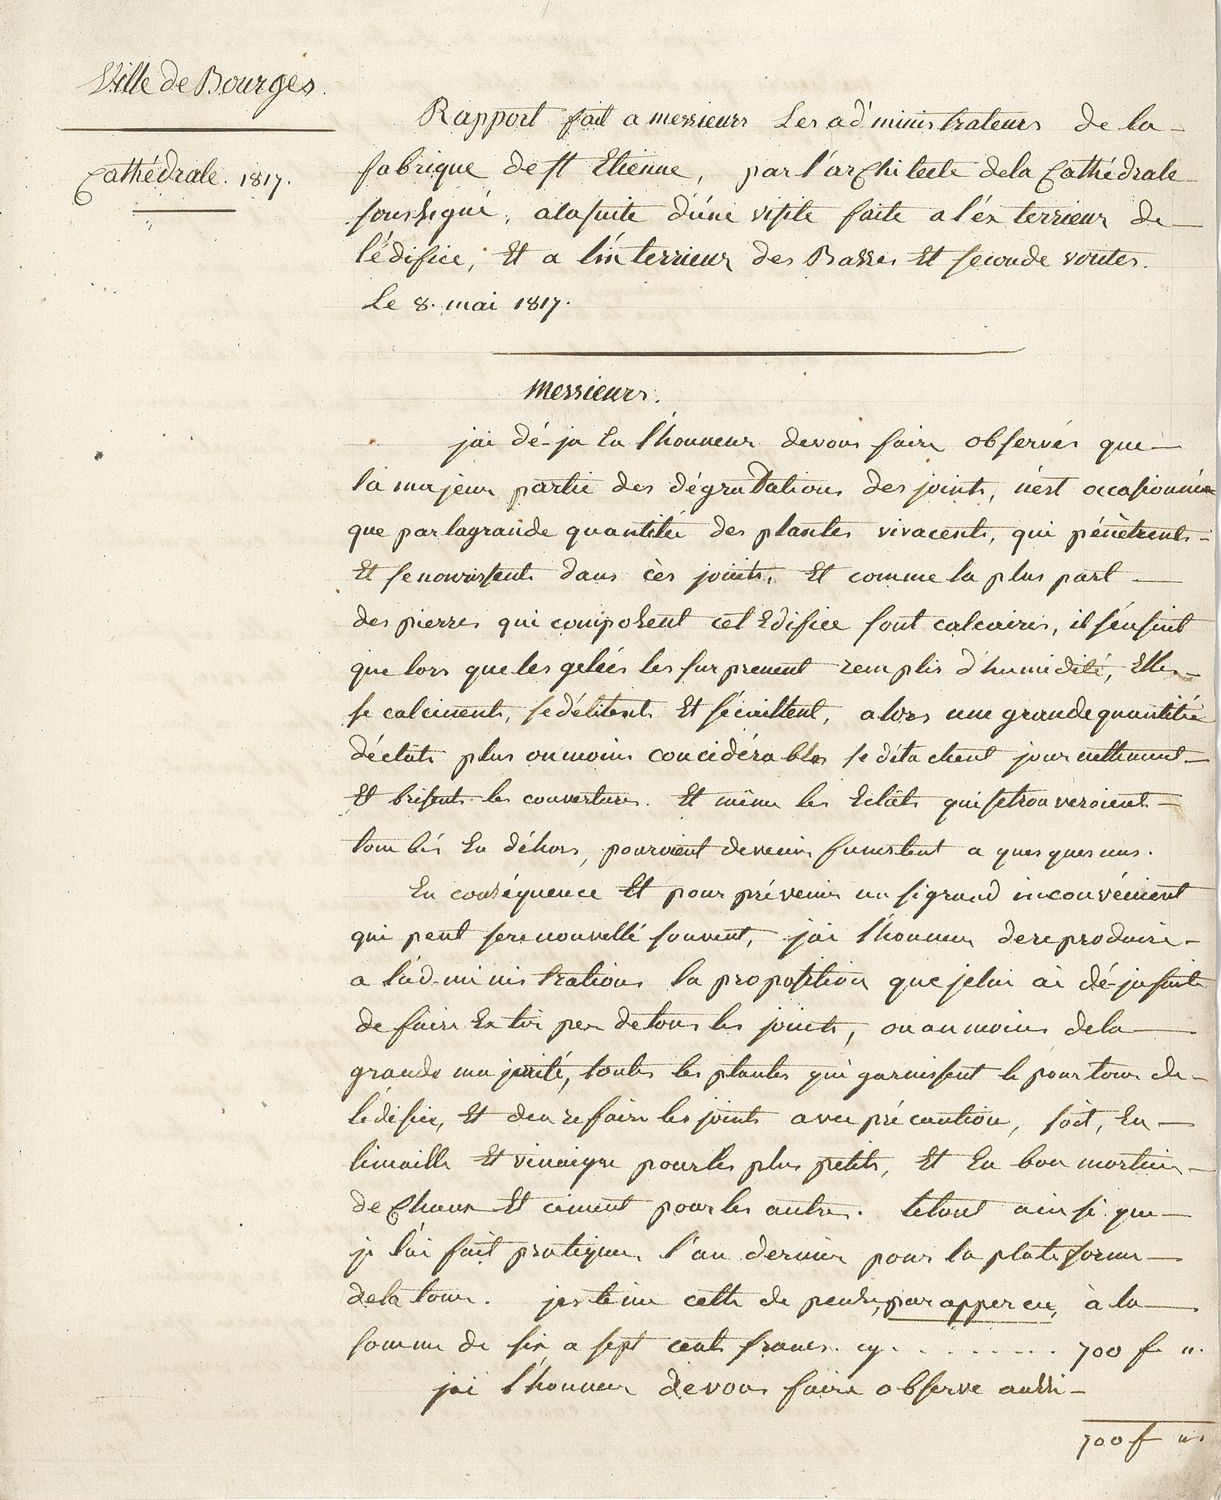 Ville de Bourges.
Cathédrale. 1817.
Rapport fait a messieurs Les ad'ministrateurs de la
fabrique de st Etienne, par l'architecte dela Cathédrale
soussigné, alasuite d'úne visite faite a l'éxterrieur de
l'édifice, Et a l'ínterrieur des Basses Et seconde voutes.
Le 8. mai 1817.
Messieurs.
jai dé-ja Eu l'honneur devous faire observér que
la majeur partie des dégradations des joints, n'est occasionnée
que par lagrande quantitée des plantes vivacents, qui pénètrent
Et senourissent dans cès joints, Et comme la plus part
des pierres qui composent cet Edifice sont calcaires, il s'ensuit
que lors que les gelées les surprenent remplis d'humidité, Elles
se calcinent, sedélitent Et s'écaillent, alors une grande quantitée
d'éclats plus oumoins concidérables se détachent journellement
Et brisent les couvertures. Et même les Eclats quisetrouveroient
tombés En déhors, pourroient devenir funestent a quesques uns.
En conséquence Et pour prévenir un sigrand inconvénient
qui peut sere nouvellé souvent, jai l'honneur dereproduire
a l'ad-ministration la proposition que jelui ai dé-jafaite
de faire Extirper detous les joints, ou au moins dela
grande majorité, toutes les plantes qui garnissent le pourtour de
lédifice, Et den refaire les joints avec précaution, soit, En
limaille Et vinaigre pour les plus petits, Et En bon mortier
de Chaux Et ciment pour les autres. letout ainsi que
je l'ai fait pratiquer l'an dernier pour la plateforme
dela tour. jestime cette depense, par appercu, à la
somme de six a sept cents francs. cy. . . . . . . . . 700 f "
jai l'honneur devous faire observe aussi
700 f "